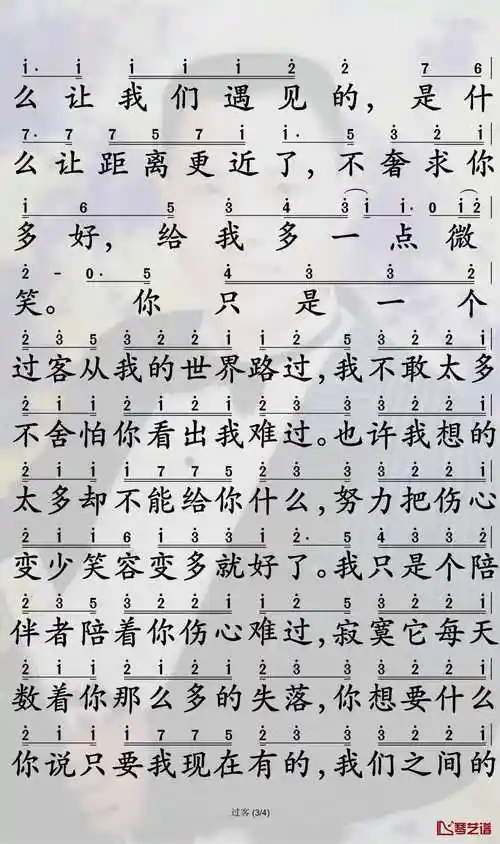 么让我们遇见的，是什
么让距离更近了，不奢求你
多好，给我多一点微
笑。你只是一个
过客从我的世界路过，我不敢太多
不舍怕你看出我难过。也许我想的
太多却不能给你什么，努力把伤心
变少笑容变多就好了。我只是个陪
伴者陪着你伤心难过，寂寞它每天
数着你那么多的失落，你想要什么
你说只要我现在有的，我们之间的
过客 (3/4)
琴艺谱